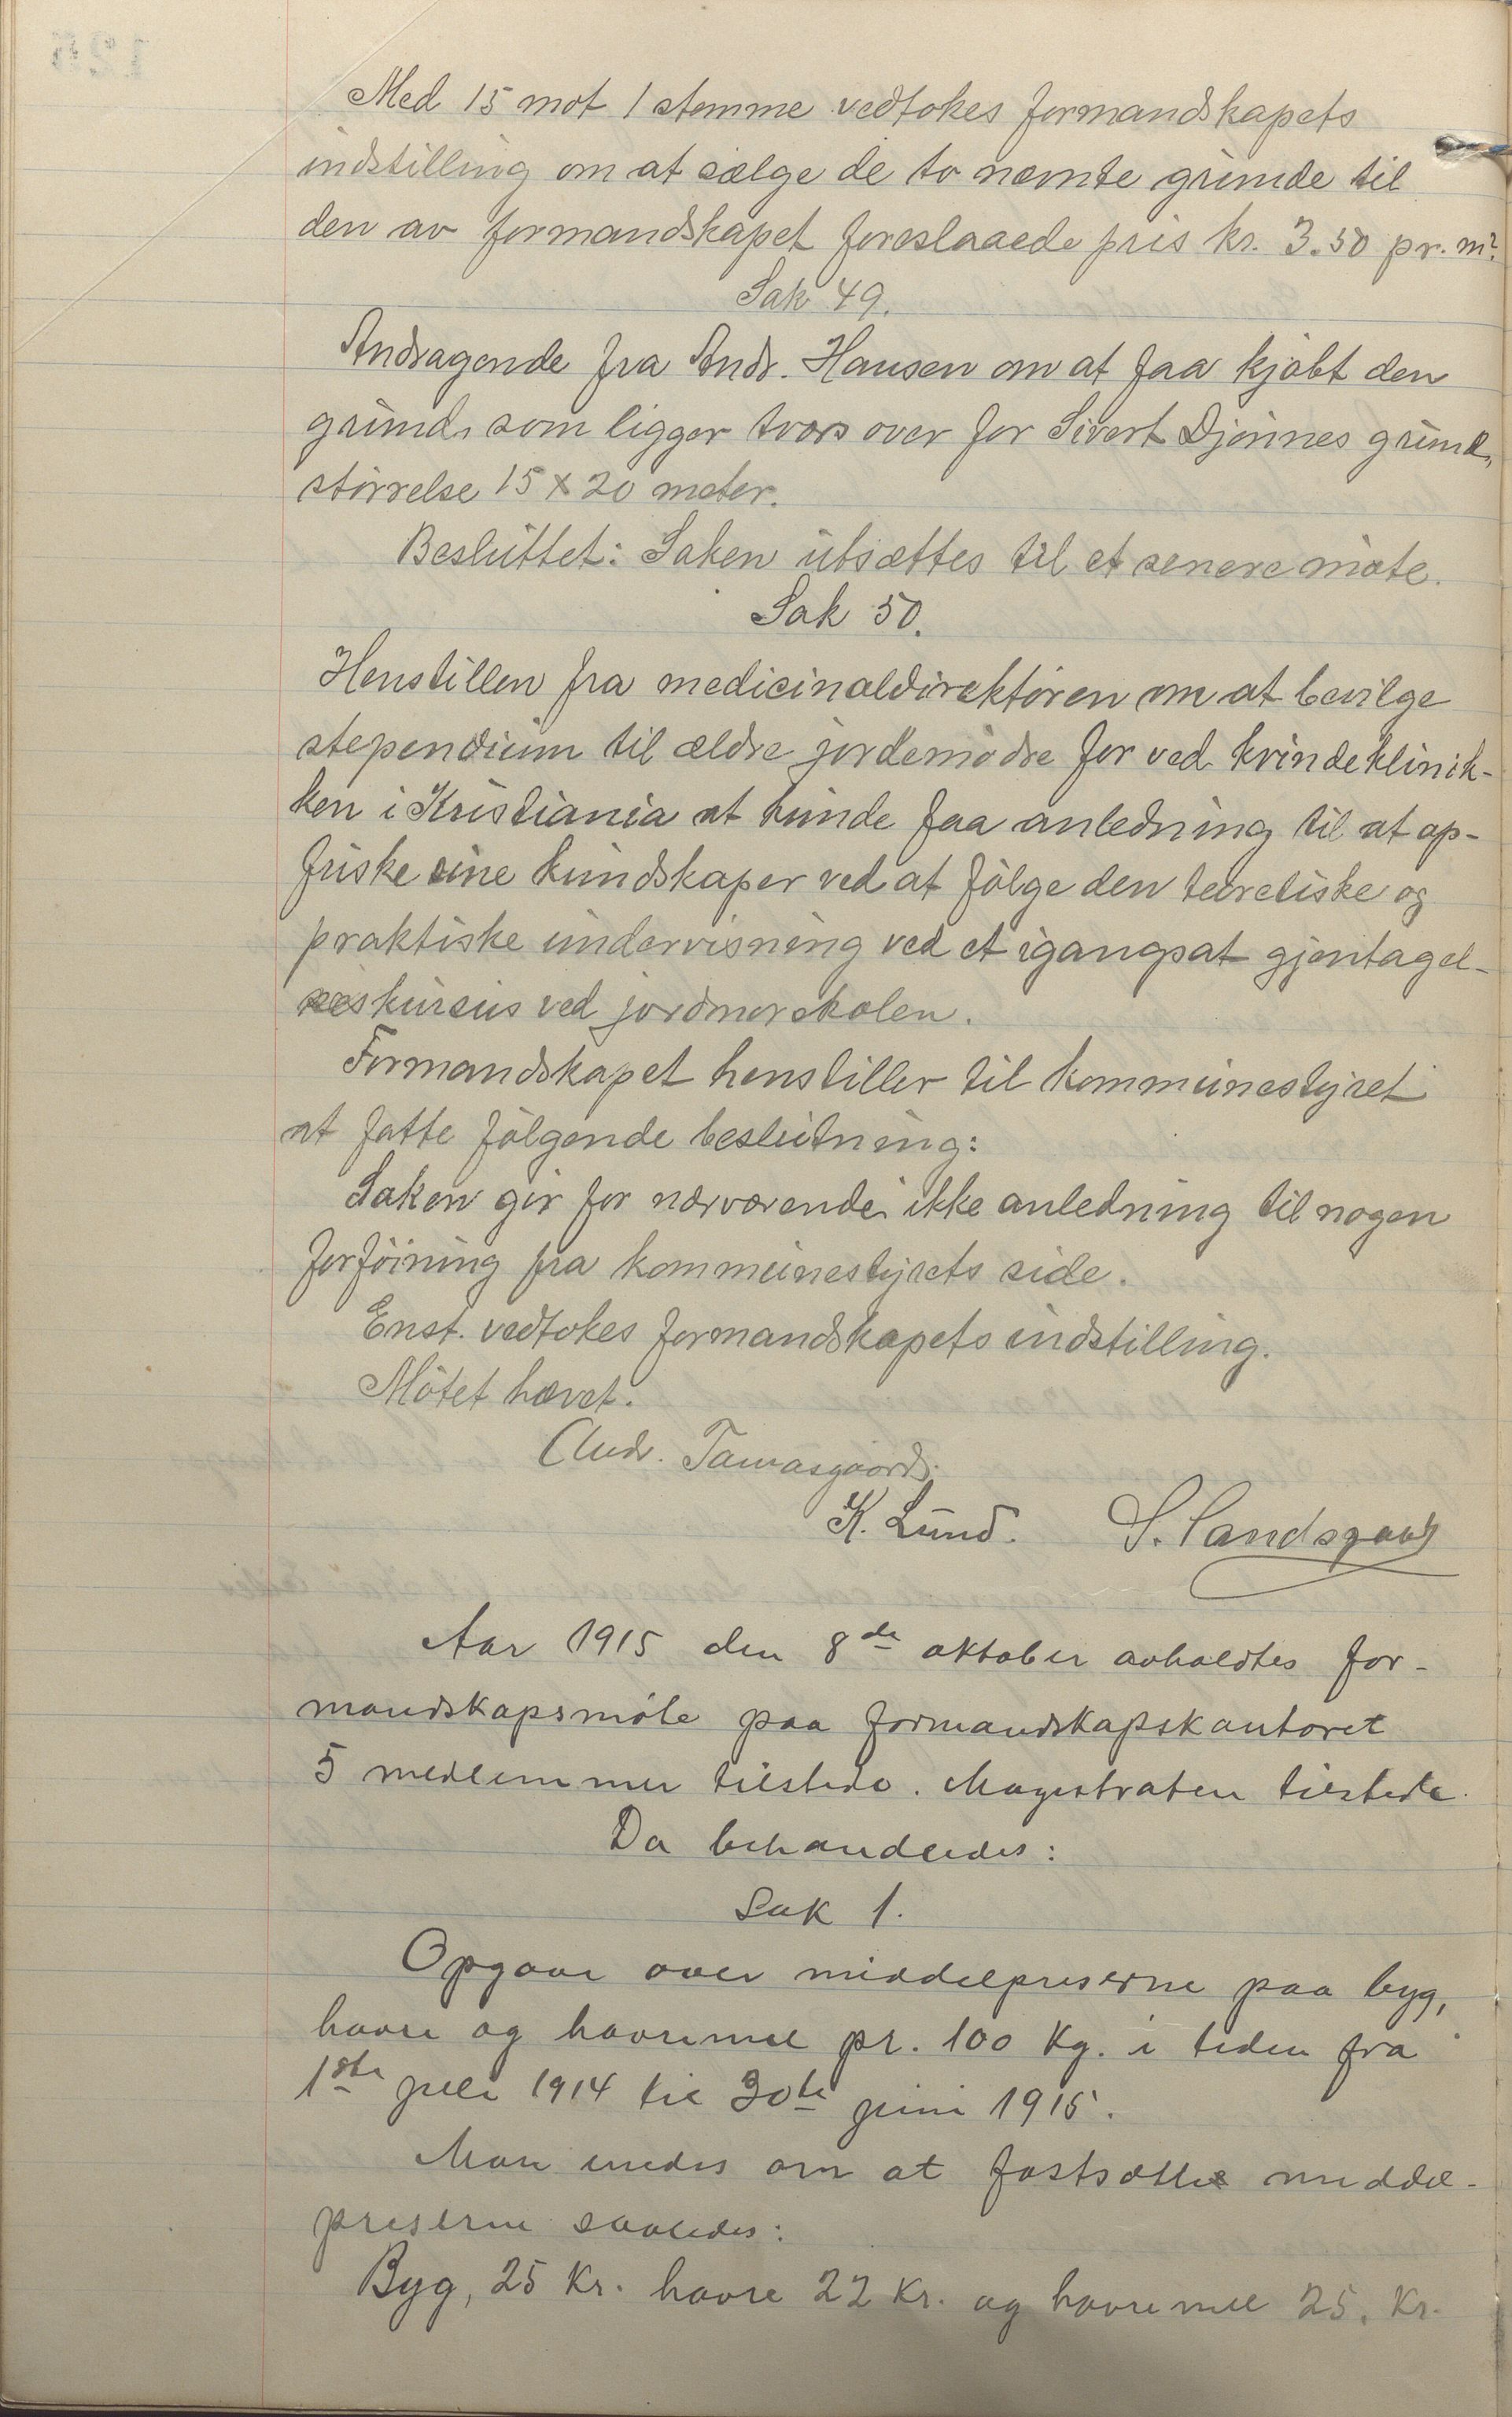 Med 15 mot 1 stemme vedtokes formandskapets
indstilling om at sælge de to nævnte grunde til
den av formandskapet foreslaaede pris kr. 3.50 pr. m².
Sak 49.
Andragende fra Andr. Hansen om at faa kjøbt den
grund, som ligger tvers over for Sivert Djønnes grund,
størrelse 15 x 20 meter.
Besluttet: Saken utsættes til et senere møte.
Sak 50.
Henstillen fra medicinaldirektøren om at bevilge
stependium til ældre jordemødre for ved kvindeklinik-
ken i Kristiania at kunde faa anledning til at op-
friske sine kundskaper ved at følge den teoretiske og
praktiske undervisning ved et igangsat gjentagel-
seskursus ved jordmorskolen.
Formandskapet henstiller til kommunestyret
at fatte følgende beslutning:
Saken gir for nærværende ikke anledning til nogen
forføining fra kommunestyrets side.
Enst. vedtokes formandskapets indstilling.
Møtet hævet.
Andr. Tamasgaard.
K. Lund. S. Sandsgaard
Aar 1915 den 8de oktober avholdtes for-
mandskapsmøte paa formandskapskontoret
5 medlemmer tilstede. Magistraten tilstede.
Da behandledes:
Sak 1.
Opgave over middelpriserne paa byg,
havre og havremel pr. 100 Kg. i tiden fra
1ste juli 1914 til 30te juni 1915.
Man enedes om at fastsætte middel-
priserne saaledes:
Byg, 25 Kr. havre 22 Kr. og havremel 25. Kr.